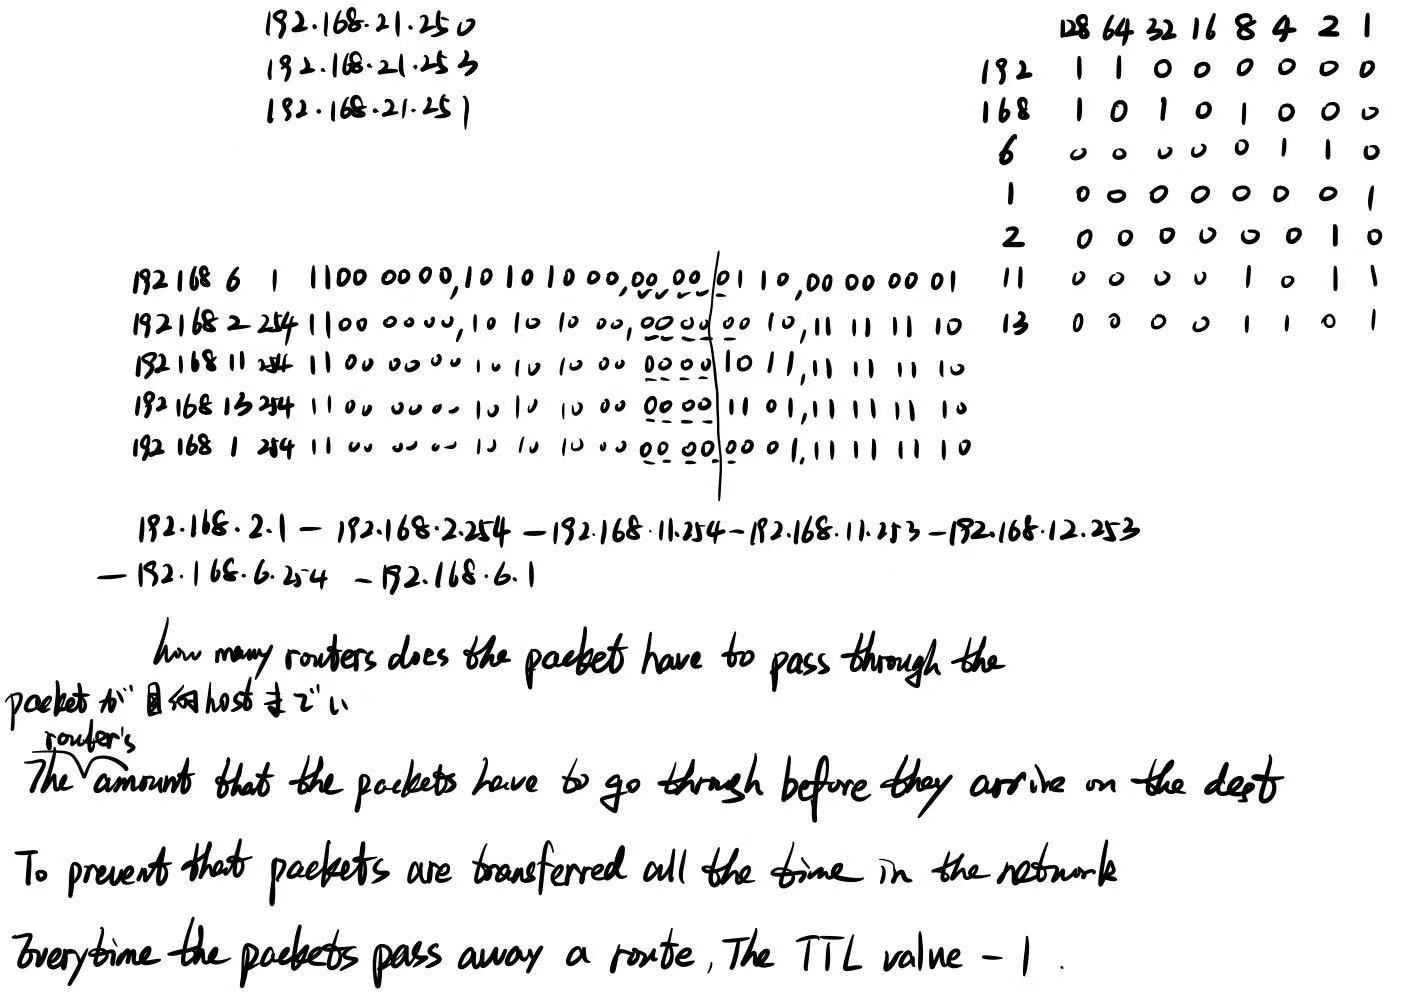 192.168.21.250
192.168.21.253
192.168.21.251
128 64 32 16 8 4 2 1
192 1 1 0 0 0 0 0 0
168 1 0 1 0 1 0 0 0
6 0 0 0 0 0 1 1 0
1 0 0 0 0 0 0 0 1
2 0 0 0 0 0 0 1 0
11 0 0 0 0 1 0 1 1
13 0 0 0 0 1 1 0 1
192 168 6 1 1100 0000,10 10 10 00,00 00 01 10,00 00 00 01
192 168 2 254 1100 0000,10 10 10 00,0000 00 10,11 11 11 10
192 168 11 254 11 00 0000 10 10 10 00 0000 10 11,11 11 11 10
192 168 13 254 11 00 0000 10 10 10 00 0000 11 01,11 11 11 10
192 168 1 254 11 00 0000 10 10 10 00 00 00 00 01,11 11 11 10
192.168.2.1 - 192.168.2.254 - 192.168.11.254 - 192.168.11.253 - 192.168.12.253
- 192.168.6.254 - 192.168.6.1
how many routers does the packet have to pass through the
packet が host までい
router's
The amount that the packets have to go through before they arrive on the dest
To prevent that packets are transferred all the time in the network
Everytime the packets pass away a route, The TTL value - 1.